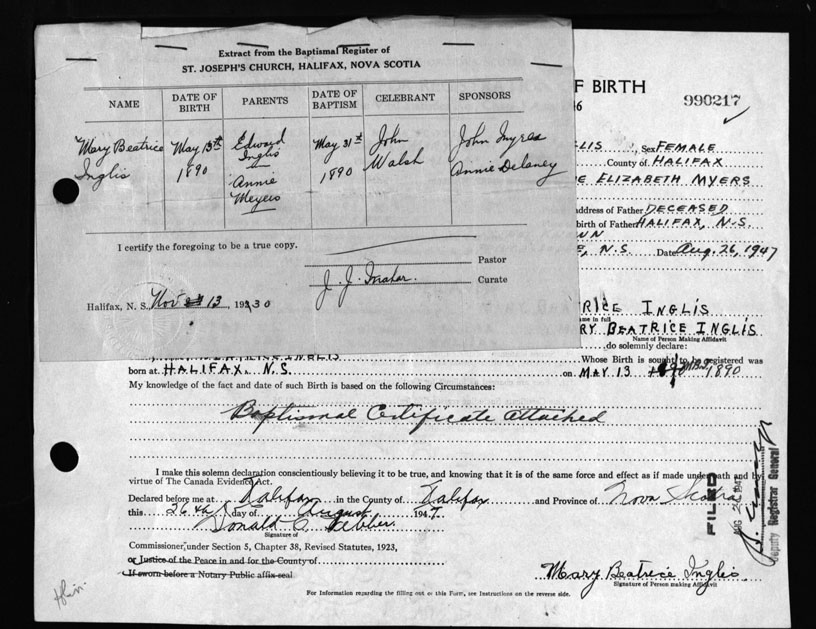 Extract from the Baptismal Register of
ST. JOSEPH'S CHURCH, HALIFAX, NOVA SCOTIA
NAME DATE OF BIRTH PARENTS DATE OF BAPTISM CELEBRANT SPONSORS
Mary Beatrice May 13th Edward May 31st John John
Inglis 1890 Inglis 1890 Walsh Annie Delaney
Annie
Meyers
I certify the foregoing to be a true copy.
Pastor
J. J. Curate
Halifax, N. S., Nov 13, 1930
OF BIRTH
990217
LIS, Sex FEMALE
County of HALIFAX
ELIZABETH MYERS
address of Father DECEASED
birth of Father HALIFAX, N.S.
WN
N.S. Date Aug. 26, 1947
RICE INGLIS
ame in full
RY BEATRICE INGLIS
Name of Person Making Affidavit
do solemnly declare:
INGLIS Whose Birth is sought to be registered was
born at HALIFAX, N.S. on MAY 13 1890
My knowledge of the fact and date of such Birth is based on the following Circumstances:
Baptismal Certificate attached
I make this solemn declaration conscientiously believing it to be true, and knowing that it is of the same force and effect as if made under oath and by
virtue of The Canada Evidence Act.
Declared before me at Halifax in the County of Halifax and Province of Nova Scotia
this 26th day of August 1947
Donald C.
Signature of
Commissioner, under Section 5, Chapter 38, Revised Statutes, 1923,
or Justice of the Peace in and for the County of
If sworn before a Notary Public affix seal
Mary Beatrice Inglis
Signature of Person making Affidavit
For Information regarding the filling out of this Form, see Instructions on the reverse side.
FILED
Deputy Registrar General